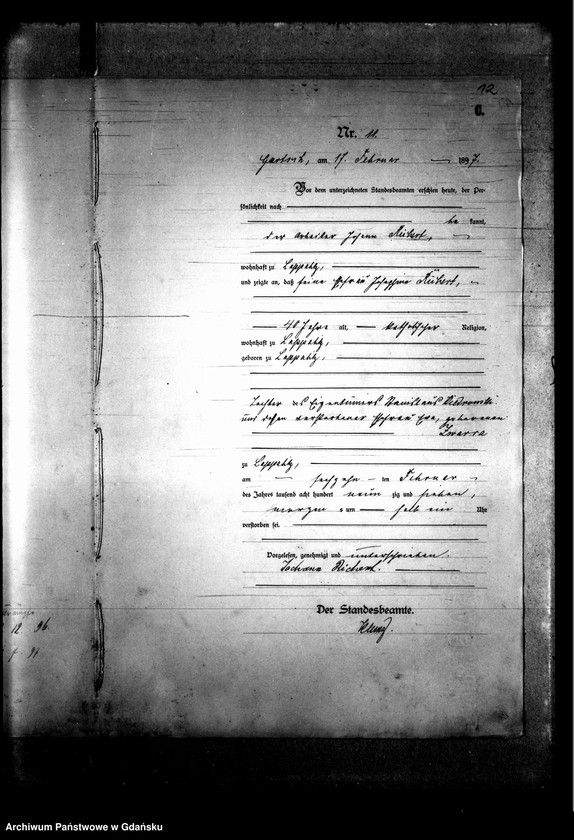 12
C.
Nr. 11.
am 17. Februar 1897.
Vor dem unterzeichneten Standesbeamten erschien heute, der Per-
sönlichkeit nach
be kannt,
der Arbeiter Johann Rübert,
wohnhaft zu Leppitz,
und zeigte an, daß seine Ehefrau Josephine Rübert,
40 Jahre alt, katholischer Religion,
wohnhaft zu Leppitz,
geboren zu Leppitz,
Tochter des Eigentümers Stanislaus
und dessen verstorbener Ehefrau Eva, geborenen
zu Leppitz,
am sechzehn ten Februar
des Jahres tausend acht hundert neun zig und sieben,
morgens um halb ein Uhr
verstorben sei.
Vorgelesen, genehmigt und unterschrieben.
Johann Richert.
Der Standesbeamte.
12 96.
Archiwum Państwowe w Gdańsku